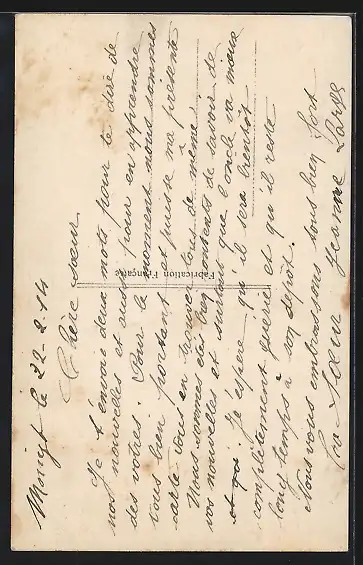 le 22-2-14
Chère sœur
Je t'envoie deux mots pour te dire de
nos nouvelles et aussi pour en apprendre
des votres. Pour le moment nous sommes
tous bien portant et puisse ma présente
carte vous en trouver tous de même.
Nous sommes etés bien contents de savoir de
vos nouvelles et surtout que l'oncle va mieux
et que j'éspere qu'il sera bientôt
complètement guerie et qu'il reste
long temps à son depôt.
Nous vous embrassons tous bien fort
ta sœur Jeanne
Fabrication Française